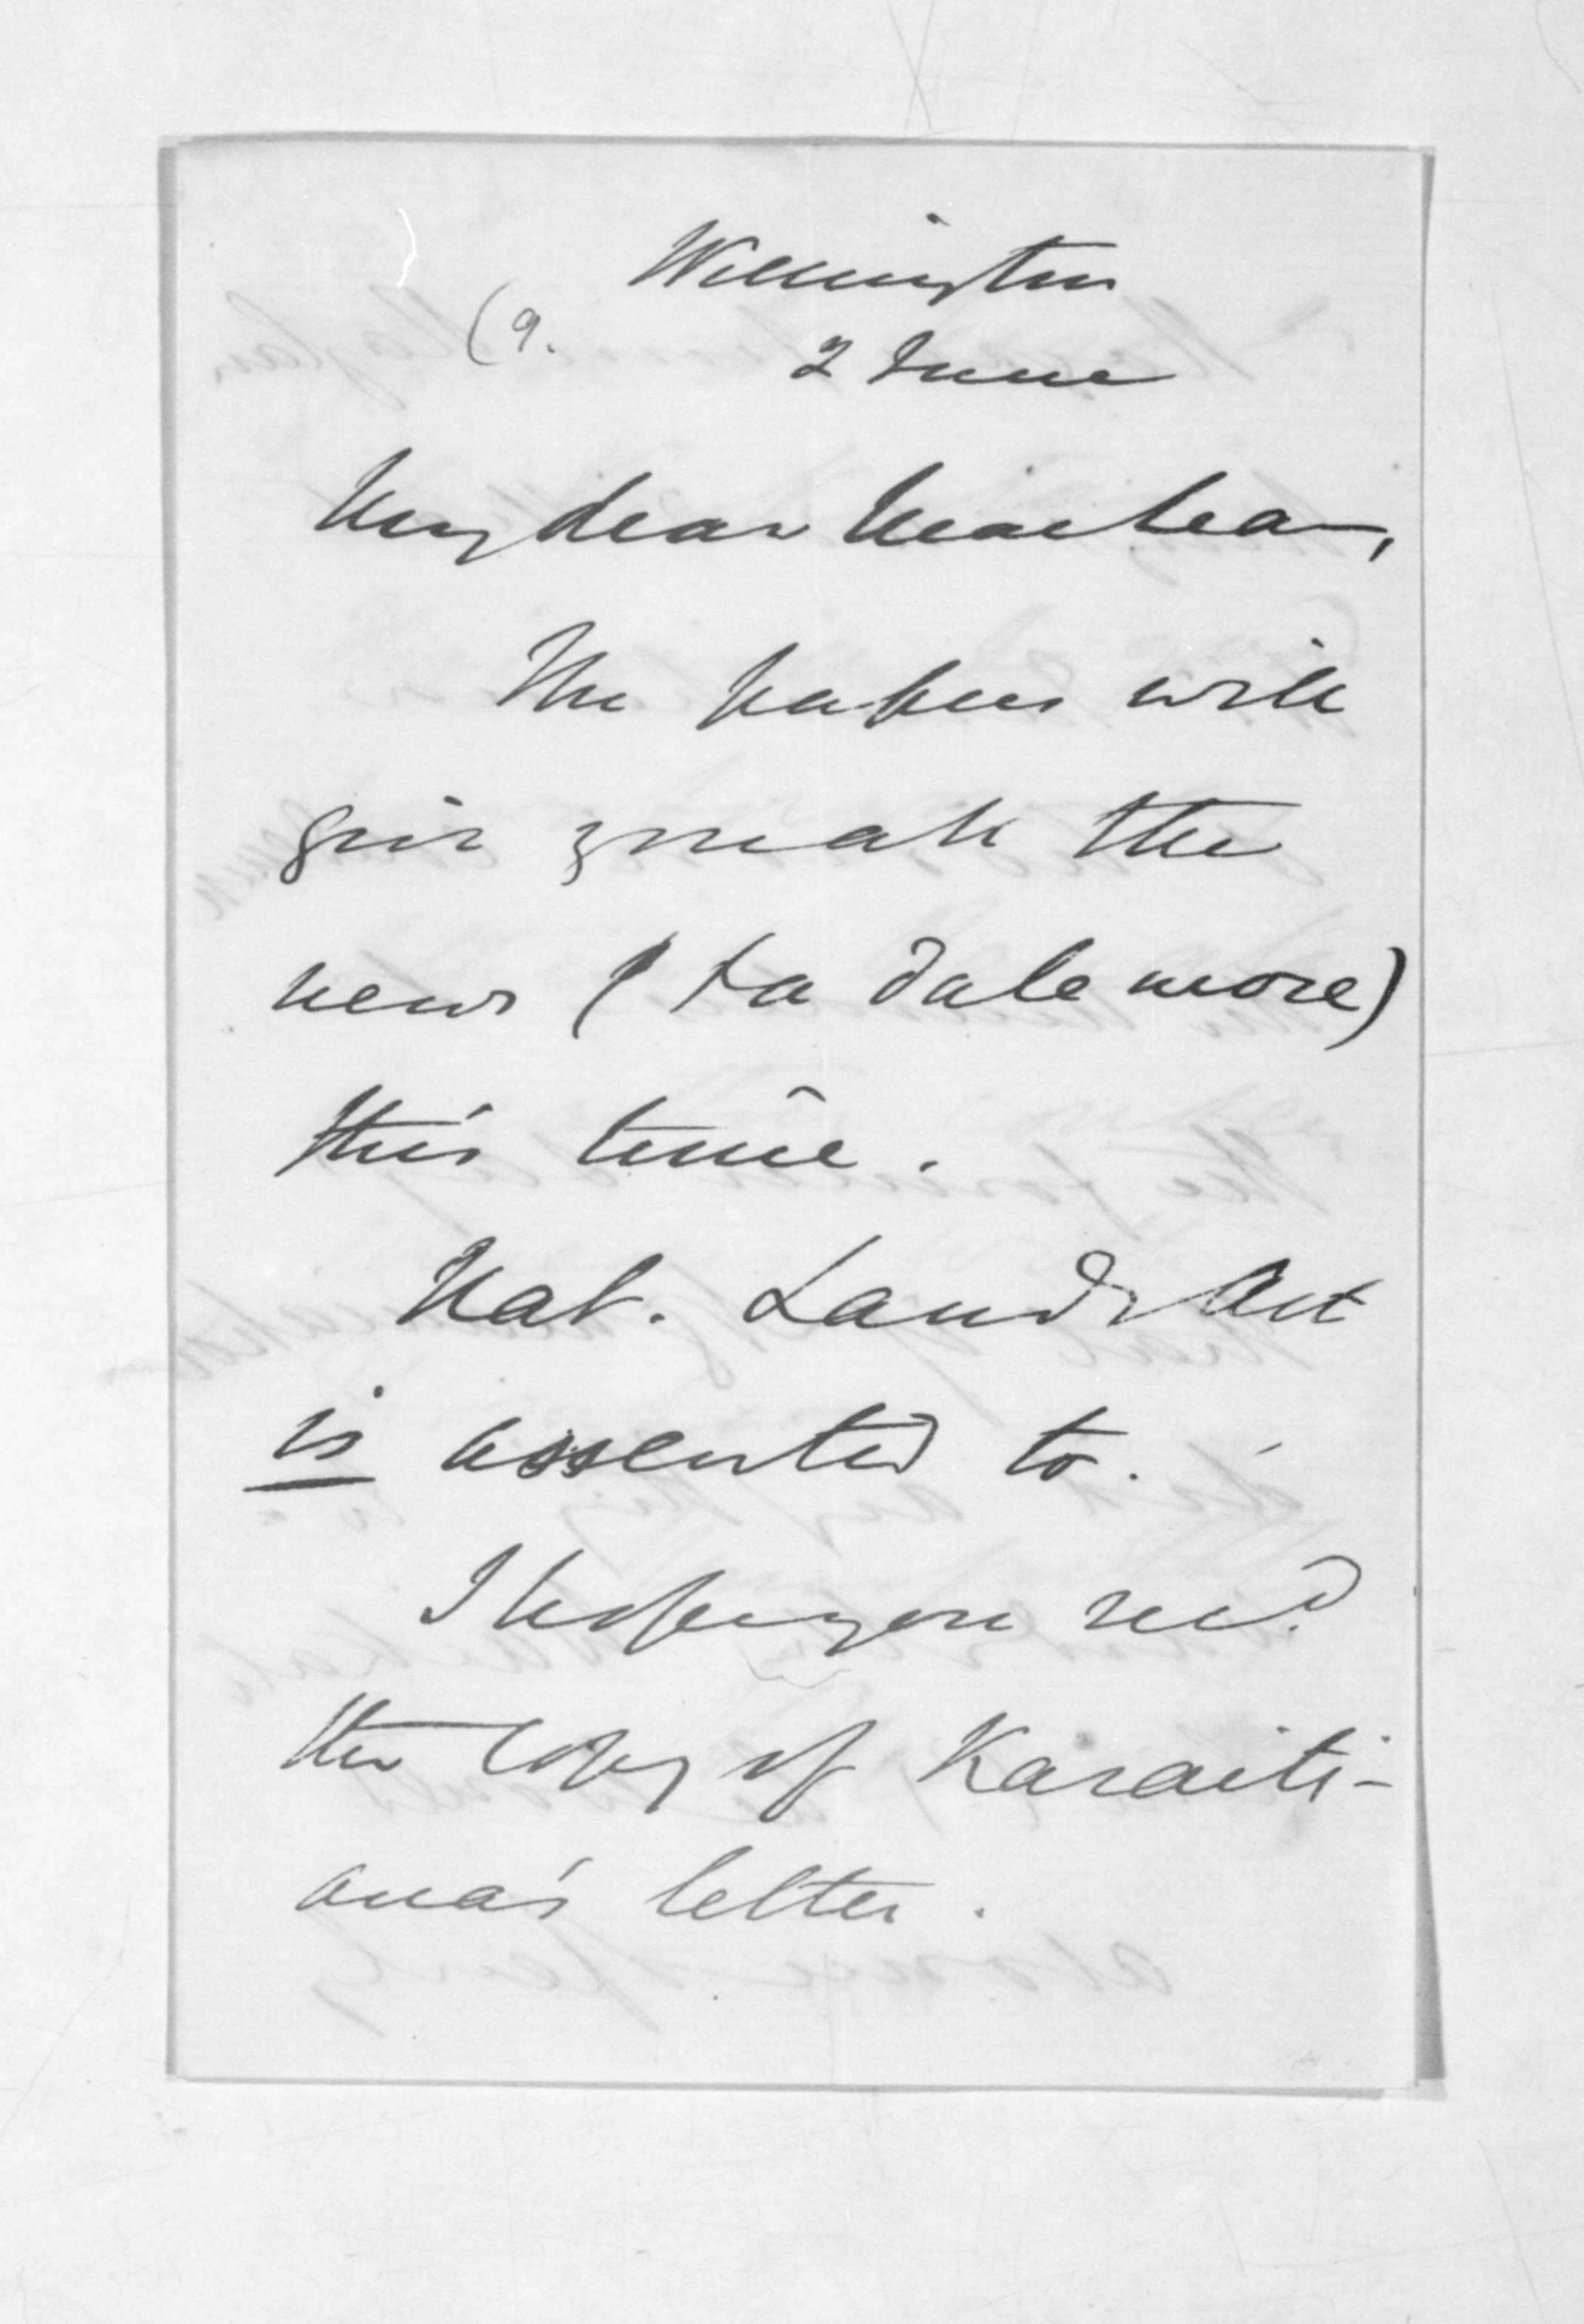 Wellington
(9.
2 June
My dear Maclean,
The papers will
give you all the
news (& a dale more)
this time.
Nat. Lands Act
is assented to.
I hope you recd.
the copy of Karaiti-
ana's letter.